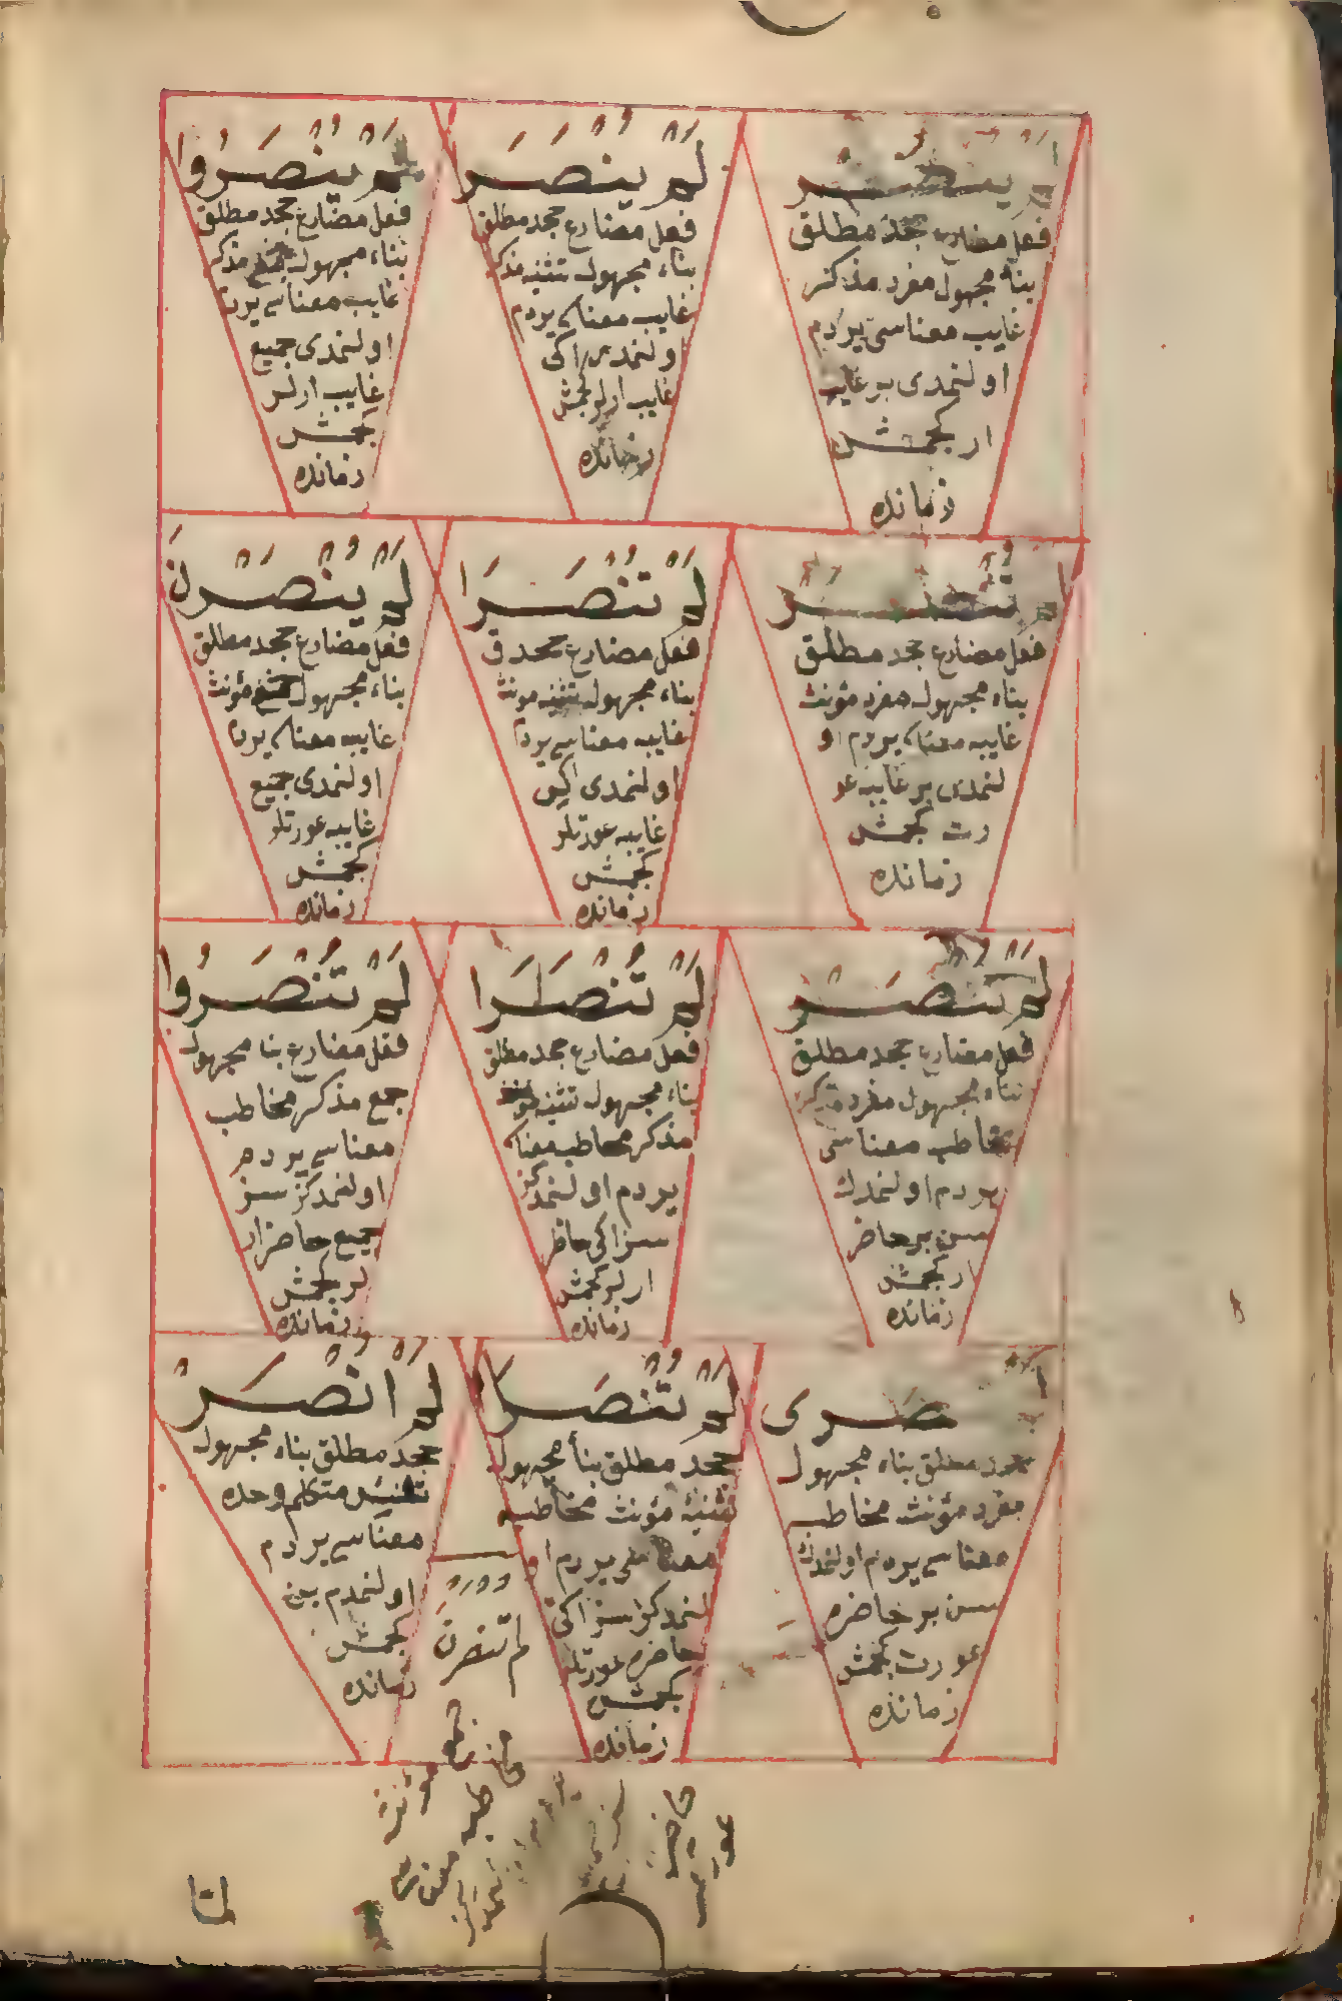 لَمْ يُنْصَرْ
فعل مضارع جحد مطلق
بناء مجهول مفرد مذكر
غايب معناسى يردم
اولنمدى بر غايب
ار كجمش
زمانده
لَمْ يُنْصَرَا
فعل مضارع جحد مطلق
بناء مجهول تثنيه مذكر
غايب معناسى يردم
اولنمدى اكى
غايب ارلر كجمش
زمانده
لَمْ يُنْصَرُوا
فعل مضارع جحد مطلق
بناء مجهول جمع مذكر
غايب معناسى يردم
اولنمدى جميع
غايب ارلر
كجمش
زمانده
لَمْ تُنْصَرْ
فعل مضارع جحد مطلق
بناء مجهول مفرد مؤنث
غايبه معناسى يردم او
لنمدى بر غايبه عو
رت كجمش
زمانده
لَمْ تُنْصَرَا
فعل مضارع جحد ق
بناء مجهول تثنيه مؤنث
غايبه معناسى يردم
اولنمدى اكى
غايبه عورتلر
كجمش
زمانده
لَمْ يُنْصَرْنَ
فعل مضارع جحد مطلق
بناء مجهول جمع مؤنث
غايبه معناسى يردم
اولنمدى جميع
غايبه عورتلر
كجمش
زمانده
لَمْ تُنْصَرْ
فعل مضارع جحد مطلق
بناء مجهول مفرد مذكر
مخاطب معناسى
يردم اولنمدك
سن بر حاضر
ار كجمش
زمانده
لَمْ تُنْصَرَا
فعل مضارع جحد مطلق
بناء مجهول تثنيه
مذكر مخاطب معناسى
يردم اولنمدكز
سز اكى حاظر
ارلر كجمش
زمانده
لَمْ تُنْصَرُوا
فعل مضارع بنا مجهول
جمع مذكر مخاطب
معناسى يردم
اولنمدكز سز
جميع حاضر ار
لر كجمش
زمانده
صَرى
جحد مطلق بناء مجهول
مفرد مؤنث مخاطبه
معناسى يردم اولنمدك
سن بر حاضره
عورت كجمش
زمانده
لَمْ تُنْصَرَا
جحد مطلق بناء مجهول
تثنيه مؤنث مخاطبه
معناسى يردم او
لنمدكز سز اكى
حاضره عورتلر
كجمش
زمانده
لَمْ انْصَرْ
جحد مطلق بناء مجهول
متكلم وحده
معناسى يردم
اولنمدم بن
كجمش
زمانده
لم تنصرن
جمع مؤنث
مخاطبه معناسى
حاضره
عورت
لنا